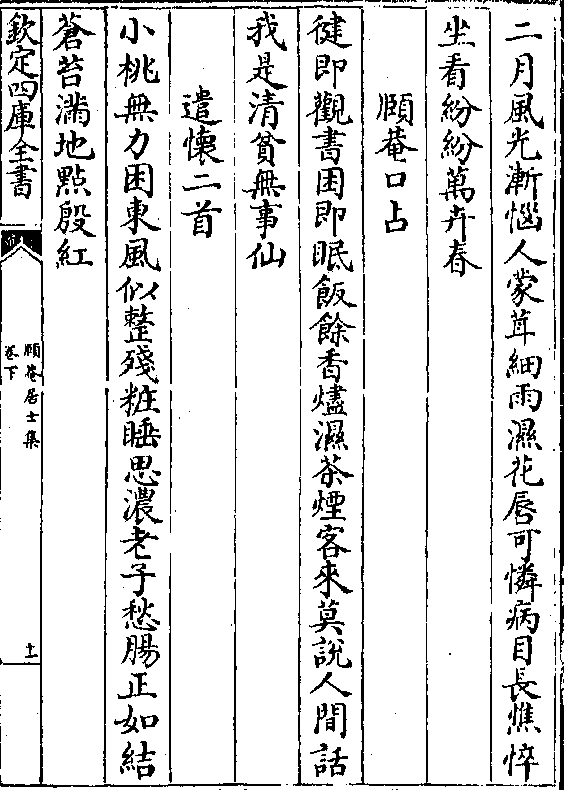 二月風光漸惱人蒙茸細雨濕花唇可憐病目長憔悴
坐看紛紛萬卉春
頤菴口占
健即觀書困即眠飯餘香燼濕茶煙客來莫說人間話
我是清貧無事仙
遣懷二首
小桃無力困東風似整殘粧睡思濃老子愁腸正如結
蒼苔滿地點殷紅
欽定四庫全書
頤菴居士集
卷下
十一